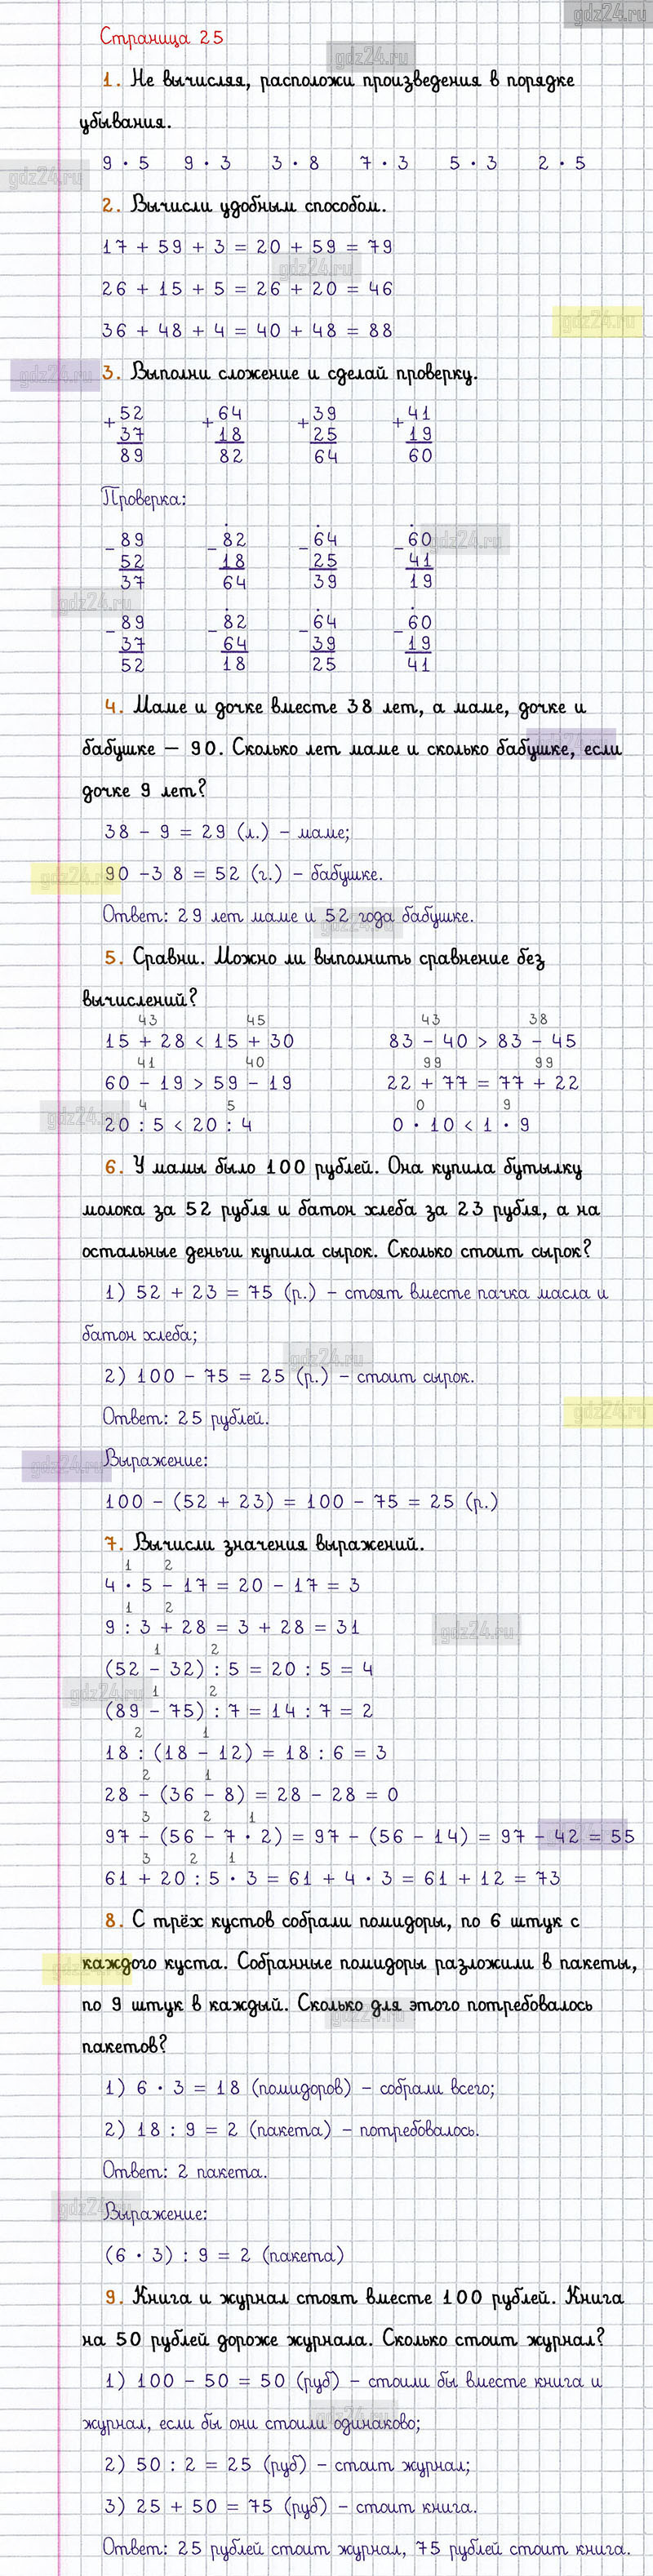 gdz24.ru
Страница 25
gdz24.ru
1. Не вычисляя, расположи произведения в порядке
убывания.
9 · 5 9 · 3 3 · 8 7 · 3 5 · 3 2 · 5
gdz24.ru
2. Вычисли удобным способом.
17 + 59 + 3 = 20 + 59 = 79
gdz24.ru
26 + 15 + 5 = 26 + 20 = 46
gdz24.ru
36 + 48 + 4 = 40 + 48 = 88
gdz24.ru
3. Выполни сложение и сделай проверку.
+ 52 + 64 + 39 + 41
37 18 25 19
89 82 64 60
Проверка:
- 89 - 82 - 64 - 60
gdz24.ru
52 18 25 41
37 64 39 19
gdz24.ru
- 89 - 82 - 64 - 60
37 64 39 19
52 18 25 41
4. Маме и дочке вместе 38 лет, а маме, дочке и
бабушке – 90. Сколько лет маме и сколько бабушке, если
gdz24.ru
дочке 9 лет?
38 - 9 = 29 (л.) - маме;
gdz24.ru
90 -3 8 = 52 (г.) - бабушке.
Ответ: 29 лет маме и 52 года бабушке.
gdz24.ru
5. Сравни. Можно ли выполнить сравнение без
вычислений?
43 45 43 38
15 + 28 < 15 + 30 83 - 40 > 83 - 45
41 40 99 99
60 - 19 > 59 - 19 22 + 77 = 77 + 22
gdz24.ru
4 5 0 9
20 : 5 < 20 : 4 0 · 10 < 1 · 9
6. У мамы было 100 рублей. Она купила бутылку
молока за 52 рубля и батон хлеба за 23 рубля, а на
остальные деньги купила сырок. Сколько стоит сырок?
1) 52 + 23 = 75 (р.) - стоят вместе пачка масла и
батон хлеба;
gdz24.ru
2) 100 - 75 = 25 (р.) - стоит сырок.
gdz24.ru
Ответ: 25 рублей.
gdz24.ru
Выражение:
100 - (52 + 23) = 100 - 75 = 25 (р.)
7. Вычисли значения выражений.
1 2
4 · 5 - 17 = 20 - 17 = 3
1 2
9 : 3 + 28 = 3 + 28 = 31
gdz24.ru
1 2
(52 - 32) : 5 = 20 : 5 = 4
gdz24.ru
1 2
(89 - 75) : 7 = 14 : 7 = 2
2 1
18 : (18 - 12) = 18 : 6 = 3
2 1
28 - (36 - 8) = 28 - 28 = 0
3 2 1
97 - (56 - 7 · 2) = 97 - (56 - 14) = 97 - 42 = 55
gdz24.ru
3 2 1
61 + 20 : 5 · 3 = 61 + 4 · 3 = 61 + 12 = 73
8. С трёх кустов собрали помидоры, по 6 штук с
каждого куста. Собранные помидоры разложили в пакеты,
gdz24.ru
по 9 штук в каждый. Сколько для этого потребовалось
gdz24.ru
пакетов?
1) 6 · 3 = 18 (помидоров) - собрали всего;
2) 18 : 9 = 2 (пакета) - потребовалось.
Ответ: 2 пакета.
gdz24.ru
Выражение:
(6 · 3) : 9 = 2 (пакета)
9. Книга и журнал стоят вместе 100 рублей. Книга
на 50 рублей дороже журнала. Сколько стоит журнал?
1) 100 - 50 = 50 (руб) - стоили бы вместе книга и
журнал, если бы они стоили одинаково;
gdz24.ru
2) 50 : 2 = 25 (руб) - стоит журнал;
3) 25 + 50 = 75 (руб) - стоит книга.
Ответ: 25 рублей стоит журнал, 75 рублей стоит книга.